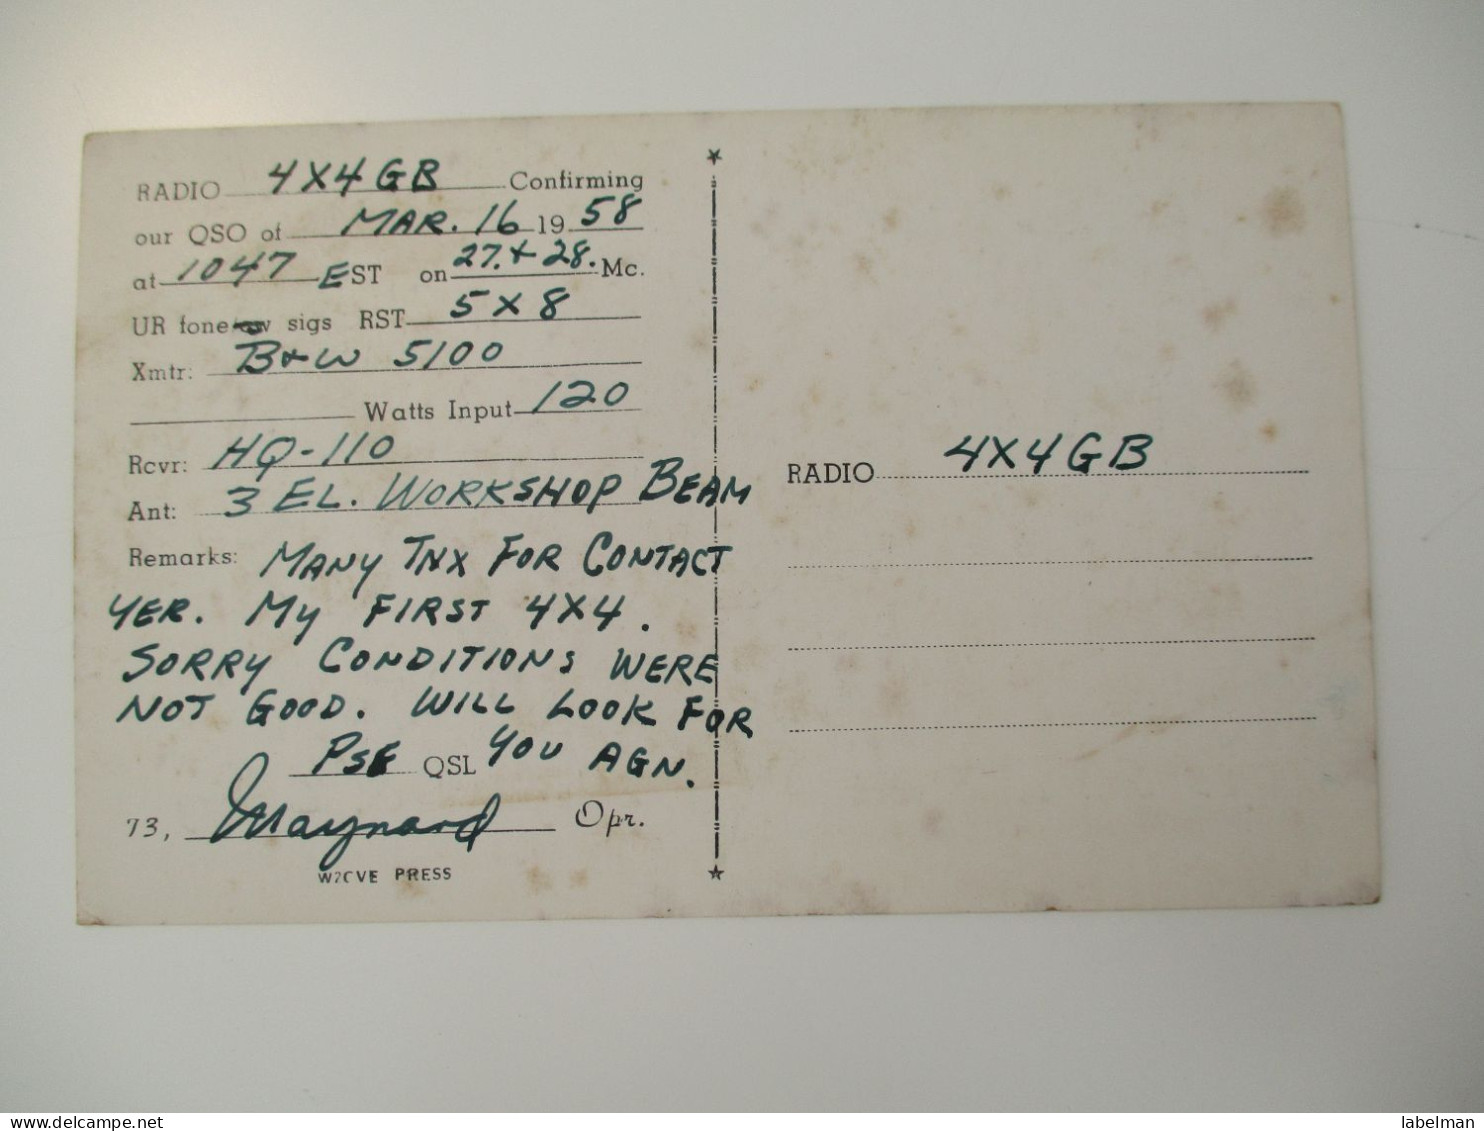 RADIO 4X4GB Confirming
our QSO of MAR. 16 19 58
at 1047 EST on 27. + 28. Mc.
UR fone sigs RST 5 X 8
Xmtr: B+W 5100
Watts Input 120
Rcvr: HQ-110
Ant: 3 EL. WORKSHOP BEAM
Remarks: MANY TNX FOR CONTACT
YER. MY FIRST 4X4.
SORRY CONDITIONS WERE
NOT GOOD. WILL LOOK FOR
PSE QSL YOU AGN.
73, Maynard Opr.
W2CVE PRESS
RADIO 4X4GB
delcampe.net
labelman